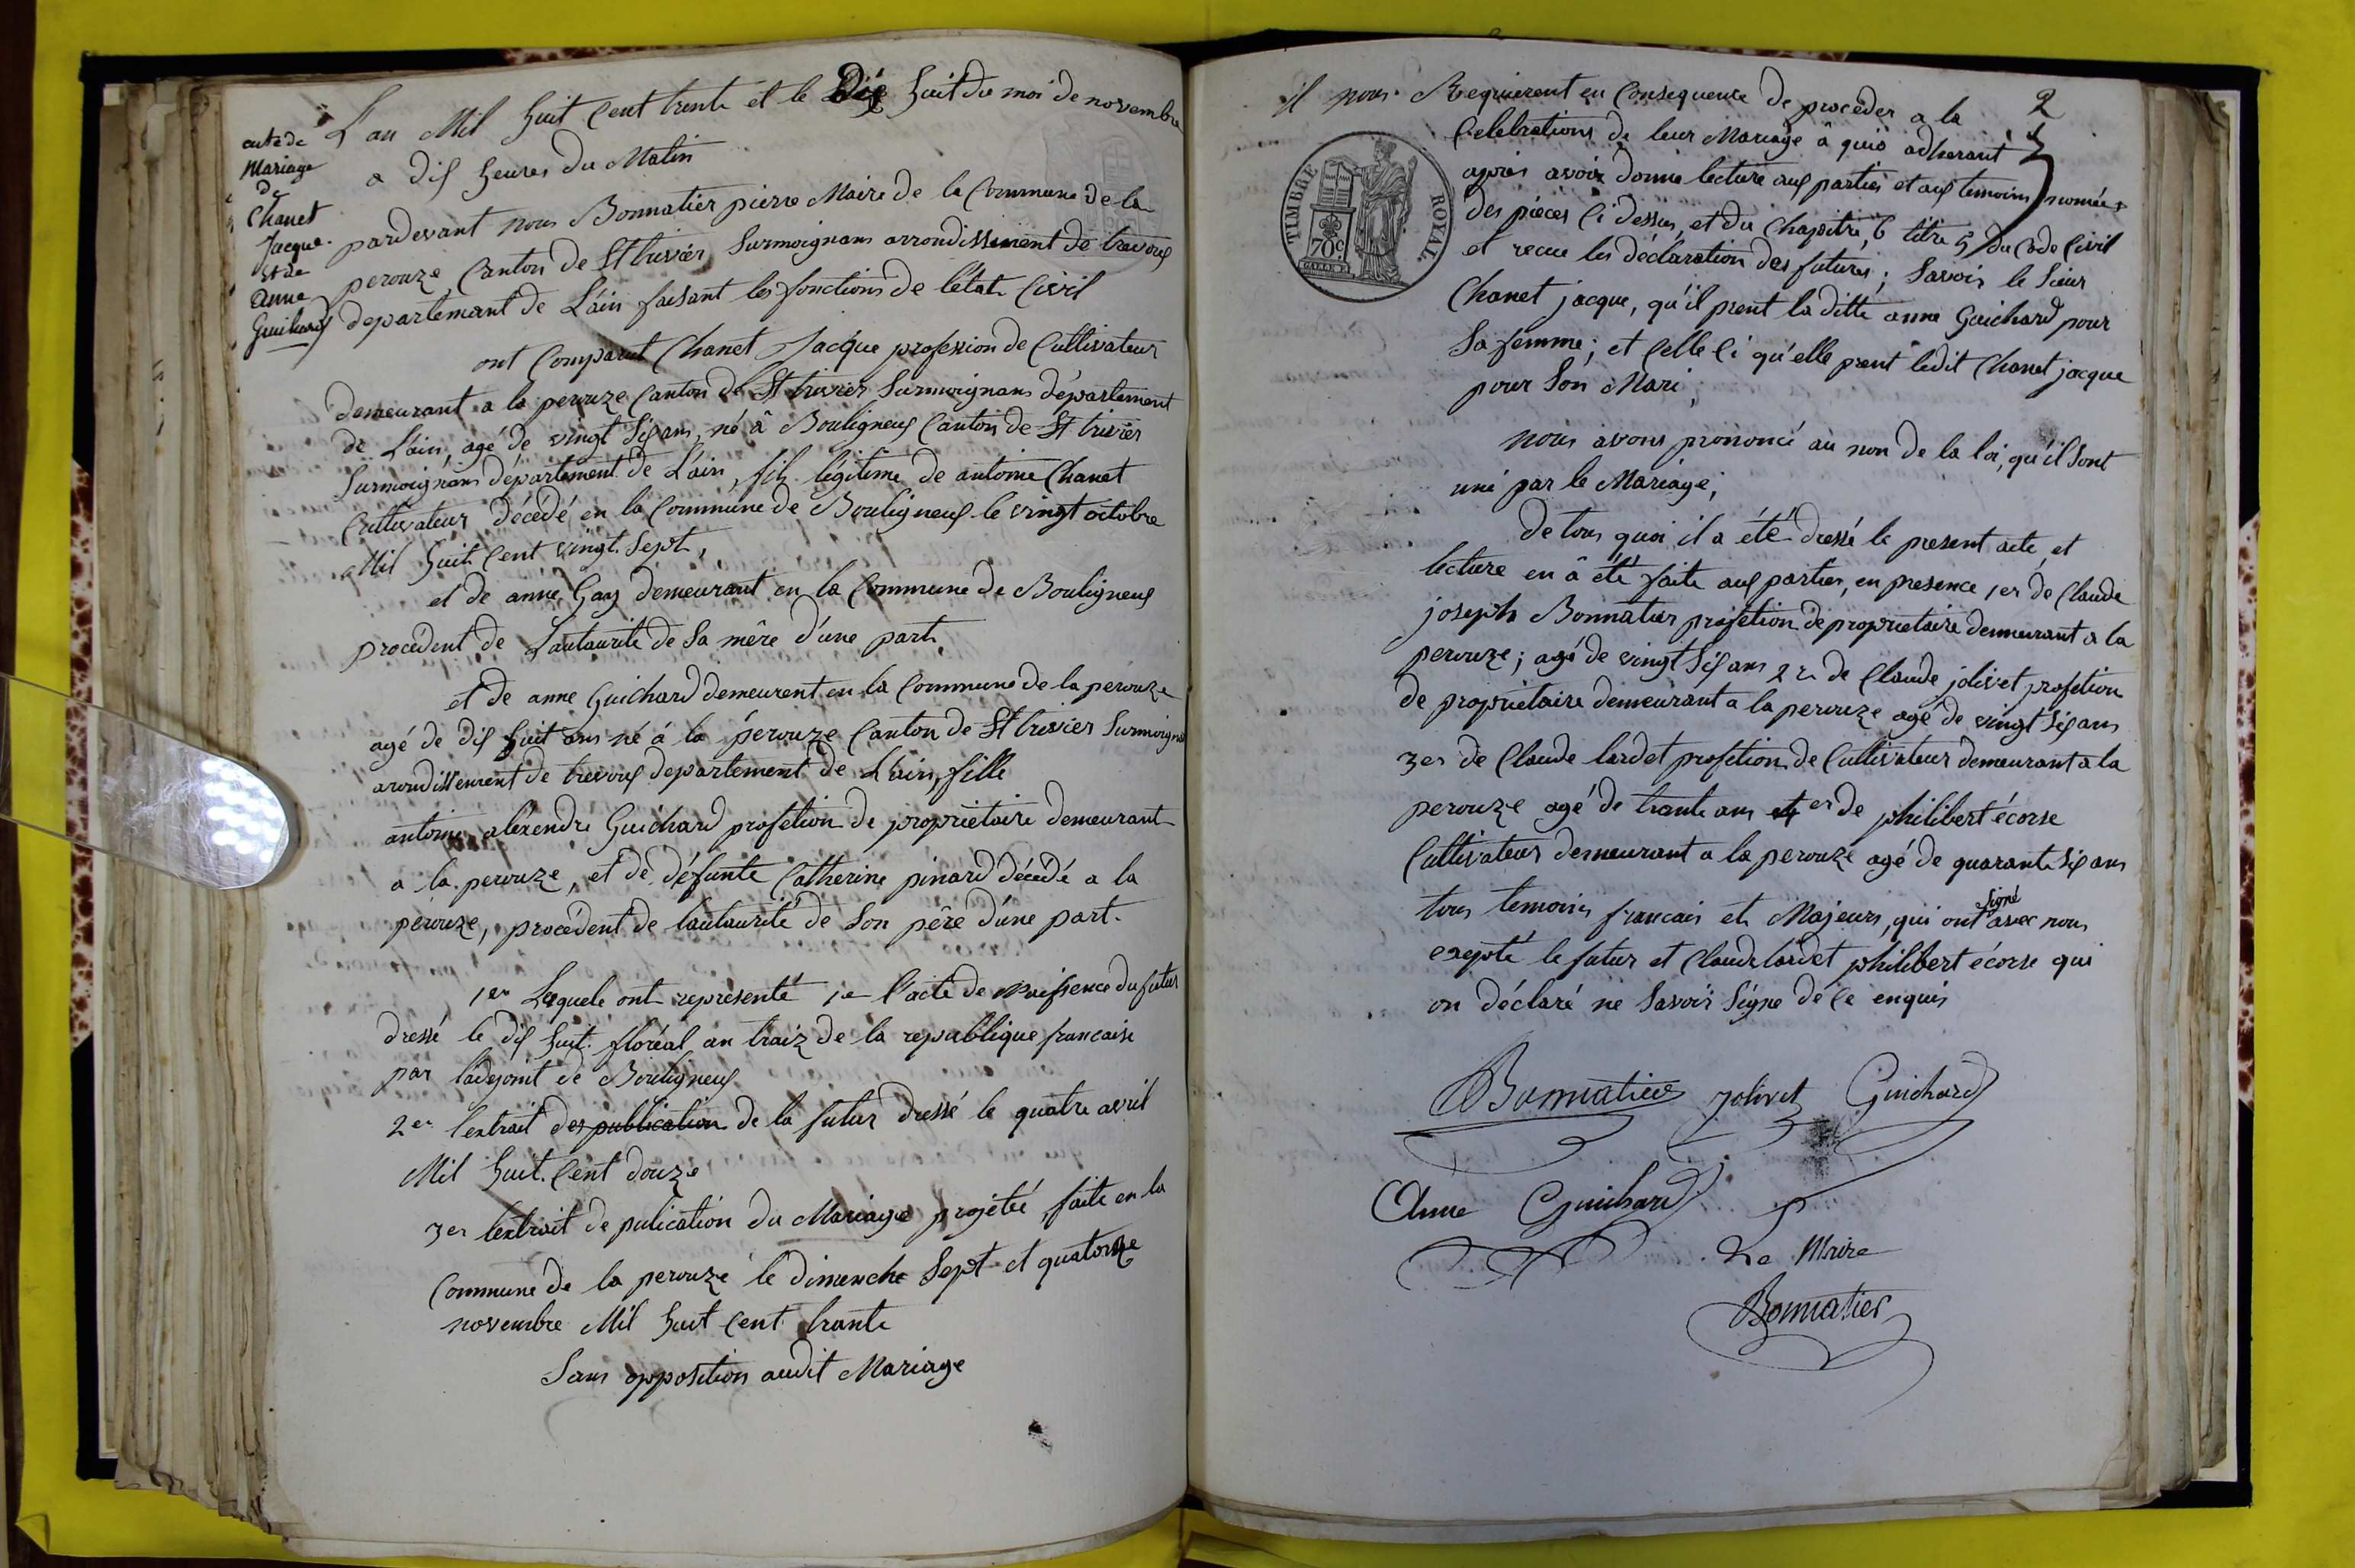 acte de
Mariage
de
Chanet
Jacque
et de
anne
Guichard
L'an Mil huit Cent trente et le Dix huit du moi de novembre
a dix heures du Matin
pardevant nous Bonnatier pierre Maire de la Commune de la
perouze Canton de St trivier Surmoignans arrondissement de trevoux
departemant de L'ain faisant les fonctions de l'état Civil
ont Comparut Chanet Jacque profession de Cultivateur
demeurant a la perouze Canton de St trivier Surmoignans département
de L'ain, agé de vingt Six ans, né â Bouligneux Canton de St trivier
Surmoignans département de L'ain, fils légitime de antoine Chanet
Cultivateur décédé en la Commune de Bouligneux le vingt octobre
Mil huit Cent vingt Sept,
et de anne Gay demeurant en la Commune de Bouligneux
procédent de L'autaurité de Sa mêre d'une part,
et de anne Guichard demeurent en la Commune de la perouze
agé de dix huit ans né á la pérouze Canton de St trivier Surmoignans
arondissement de trevoux departement de L'ain, fille
antoine alexendre Guichard profetion de propriétaire demeurant
a la perouze, et de défunte Catherine pinard décédé a la
perouze, procédent de l'autaurité de Son père d'une part.
1er Lequele ont représenté 1e l'acte de Naissence du futur
dressé le dix huit floréal an traiz de la republique francaise
par l'adejoint de Bouligneux
2er l'extrait des publication de la futur dressé le quatre avril
Mil huit Cent douze
3er l'extrait de pulication du Mariage projété faite en la
Commune de la perouze le dimenche Sept et quatorze
novembre Mil huit Cent trante
Sans opposition audit Mariage
2
il nous Requierent en Consequence de procéder a la
Celebrations de leur Mariage â quoi adherant
aprés avoir donne lecture aux parties et aux temoins nomées
des pièces Ci dessus, et du Chapitre 6 titre 5 du Code Civil
et recue les déclaration des futures; Savoir le Sieur
Chanet jacque, qu'il prent la ditte anne Guichard pour
Sa femme; et Celle Ci qu'elle prent ledit Chanet jacque
pour Son Mari;
TIMBRE ROYAL
70c
nous avons prononcé au non de la loi, qu'il Sont
uni par le Mariage;
De tous quoi il a été dressé le present acte, et
lecture en â été faite aux parties, en presence 1er de Claude
joseph Bonnatier profetion de proprietaire demeurant a la
perouze; agé de vingt Six ans 2e de Claude jolivet profetion
de propriétaire demeurant a la perouze agé de vingt Six ans
3er de Claude lardet profetion de Cultivateur demeurant a la
perouze agé de trante ans 4er de philibert écorse
Cultivateur demeurant a la perouze agé de quarante Six ans
tous temoins francais et Majeurs, qui ont signé avec nous
exepté le futur et Claude lardet philibert écorse qui
on déclaré ne Savoir Signe de Ce enquis
Bonnatier Jolivet Guichard
Anne Guichard
Le Maire
Bonnatier